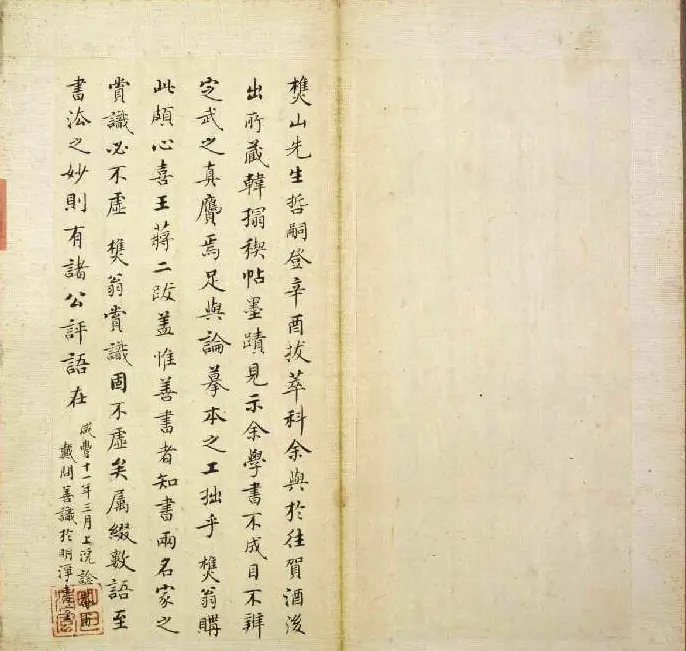 樵山先生哲嗣登辛酉拔萃科余與於往賀酒後
出所藏韓搨禊帖墨蹟見示余學書不成目不辨
定武之真贗焉足與論摹本之工拙乎 樵翁購
此頗心喜王蔣二跋蓋惟善書者知書兩名家之
賞識必不虛 樵翁賞識固不虛矣屬綴數語至
書法之妙則有諸公評語在
咸豐十一年三月上浣
識於明淨